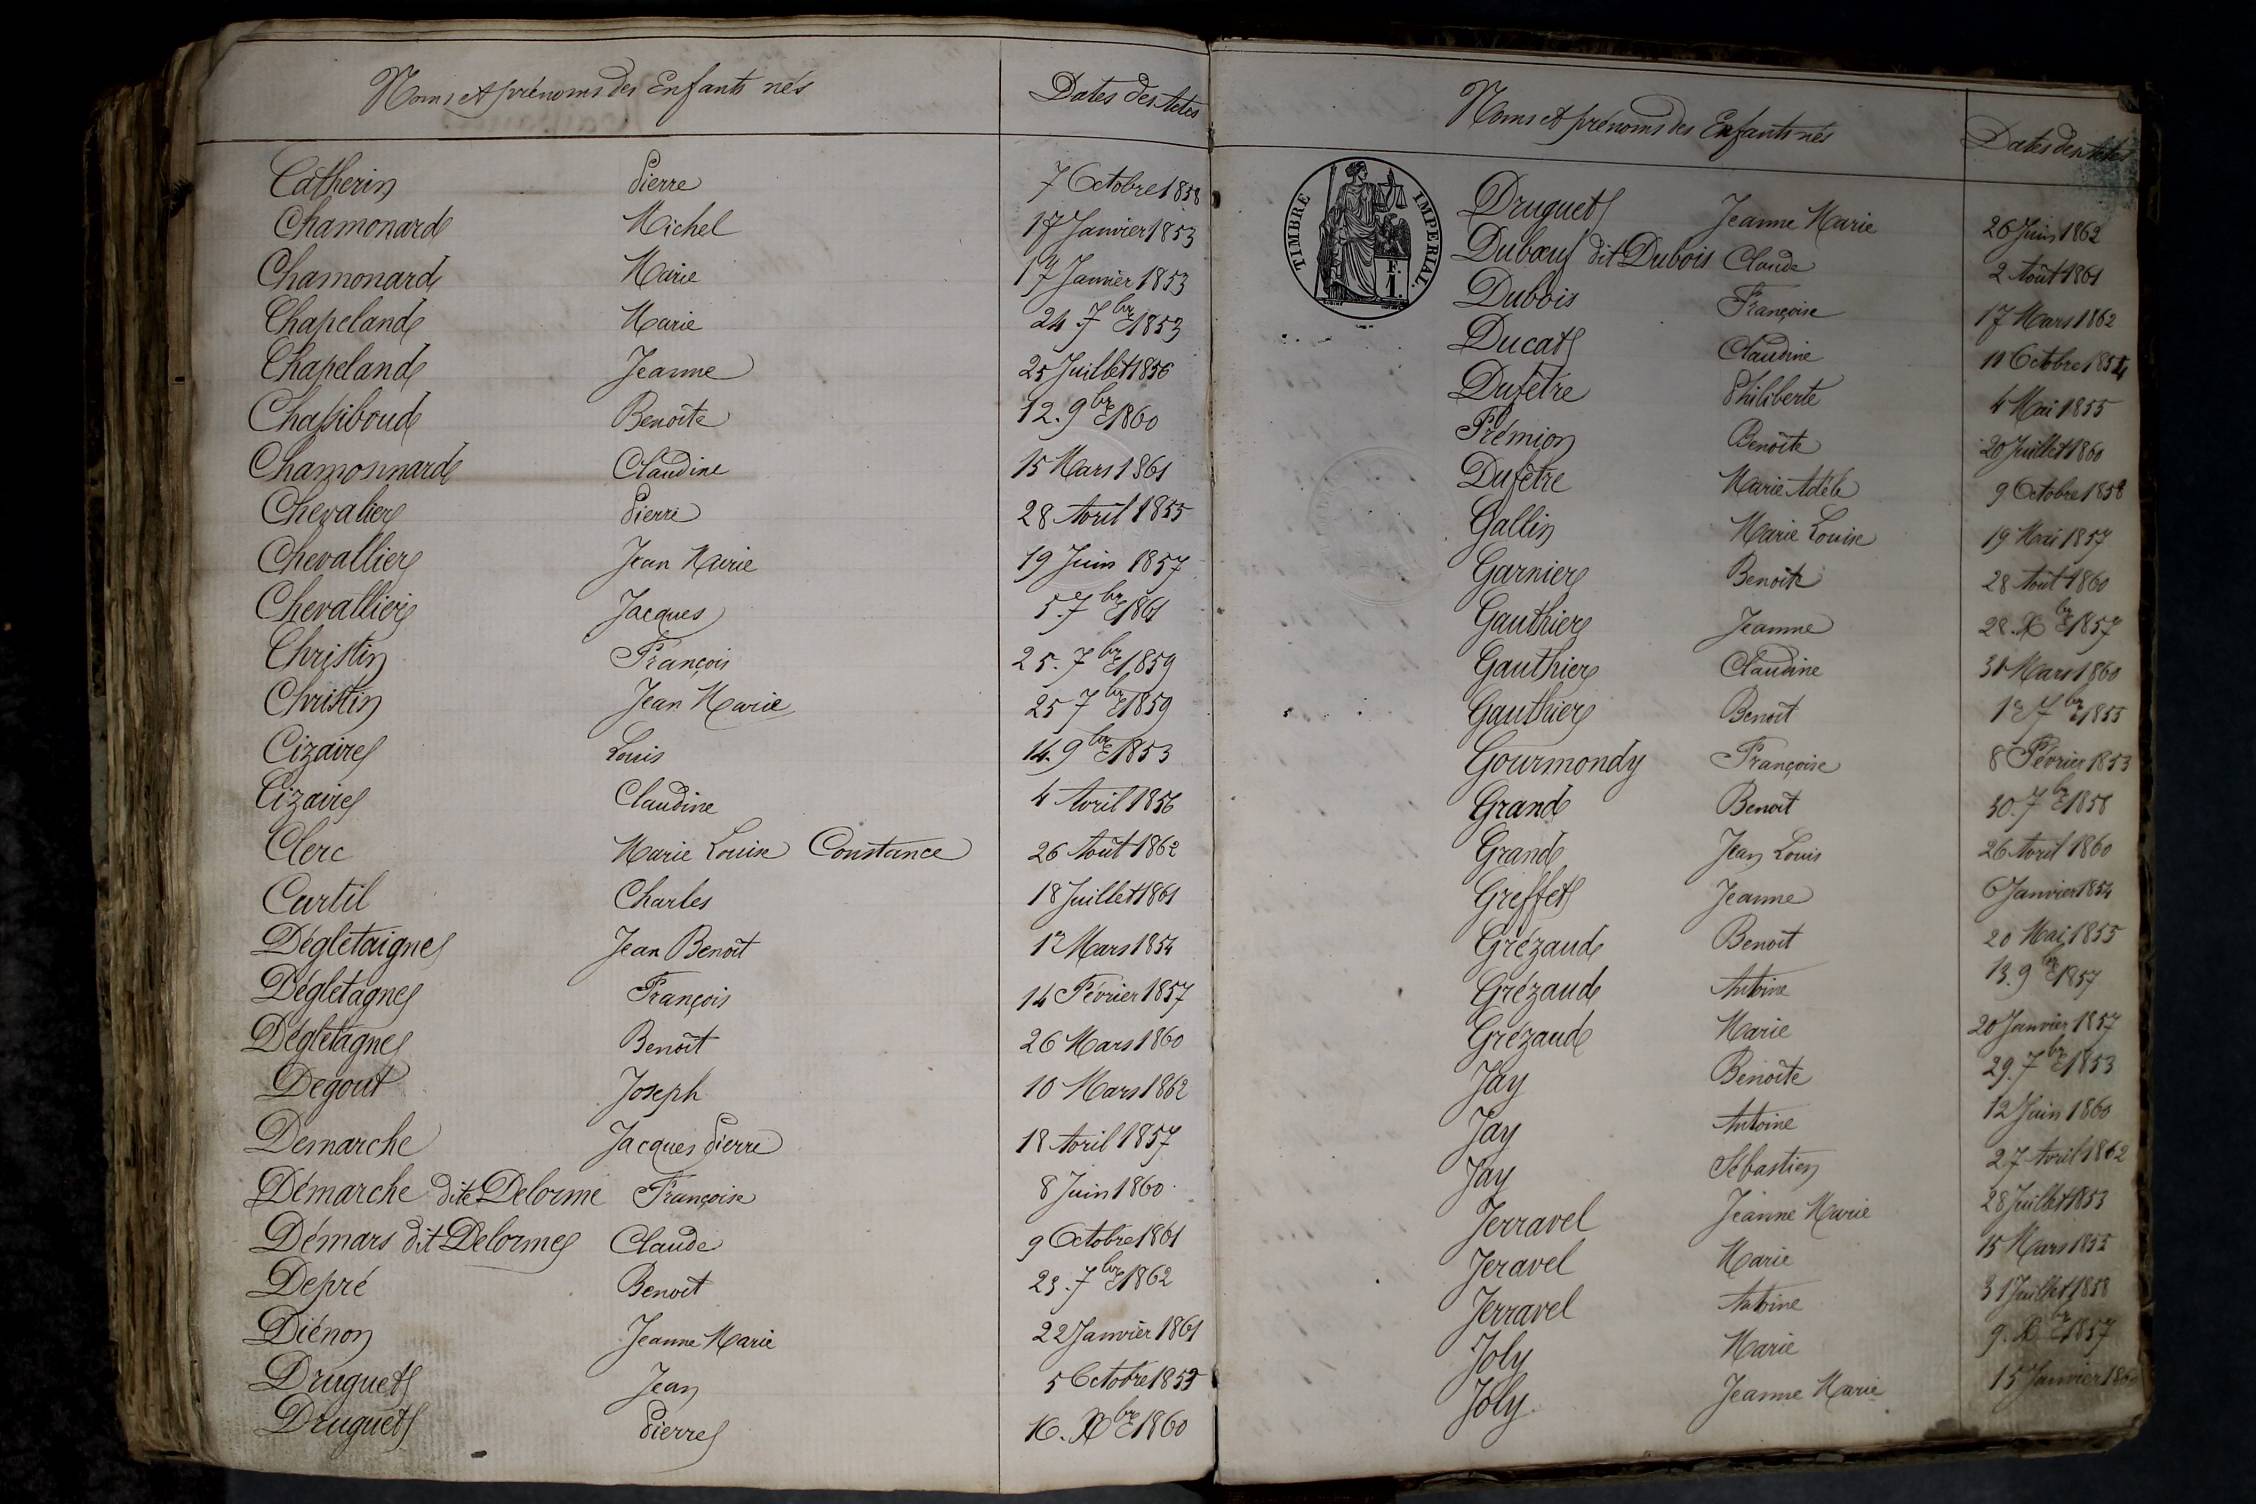 Noms et prénoms des Enfants nés Dates des Actes
Catherin Pierre 7 Octobre 1858
Chamonard Michel 17 Janvier 1853
Chamonard Marie 17 Janvier 1853
Chapeland Marie 24. 7bre 1853
Chapeland Jeanne 25 Juillet 1856
Chassiboud Benoite 12. 9bre 1860
Chamonnard Claudine 15 Mars 1861
Chevalier Pierre 28 Avril 1855
Chevallier Jean Marie 19 Juin 1857
Chevallier Jacques 5. 7bre 1861
Christin François 25. 7bre 1859
Christin Jean Marie 25 7bre 1859
Cizaire Louis 14. 9bre 1853
Cizaire Claudine 4 Avril 1856
Clerc Marie Louise Constance 26 Août 1862
Curtil Charles 18 Juillet 1861
Dégletaigne Jean Benoît 12 Mars 1854
Dégletagne François 14 Février 1857
Dégletagne Benoît 26 Mars 1860
Degout Joseph 10 Mars 1862
Demarche Jacques Pierre 18 Avril 1857
Démarche dite Delorme Françoise 8 Juin 1860
Démars dit Delorme Claude 9 Octobre 1861
Depré Benoît 23. 7bre 1862
Diénon Jeanne Marie 22 Janvier 1861
Druguet Jean 5 Octobre
Druguet Pierre 16. Xbre 1860
Noms et prénoms des Enfants nés Dates des Actes
TIMBRE IMPERIAL.
F. 1.
Druguet Jeanne Marie 26 Juin 1862
Dubœuf dit Dubois Claude 2 Août 1861
Dubois Françoise 17 Mars 1862
Ducat Claudine Octobre 1854
Dufêtre Philiberte 4 Mai 1855
Frémion Benoite 20 Juillet 1860
Dufêtre Marie Adèle 9 Octobre 1858
Gallin Marie Louise 19 Mai 1857
Garnier Benoite 28 Août 1860
Gauthier Jeanne 28. Xbre 1857
Gauthier Claudine 31 Mars 1860
Gauthier Benoît 12 7bre 1855
Gourmondy Françoise 8 Février 1853
Grand Benoît 30. 7bre 1858
Grand Jean Louis 26 Avril 1860
Greffet Jeanne 6 Janvier 1854
Grézaud Benoît 20 Mai 1855
Grézaud Antoine 13. 9bre 1857
Grézaud Marie 20 Janvier 1857
Jay Benoîte 29. 7bre 1853
Jay Antoine 12 Juin 1860
Jay Sébastien 27 Avril 1862
Jerravel Jeanne Marie 28 Juillet 1853
Jeravel Marie 15 Mars 1855
Jerravel Antoine 31 Juillet 1858
Joly Marie 9. Xbre 1857
Joly. Jeanne Marie 15 Janvier